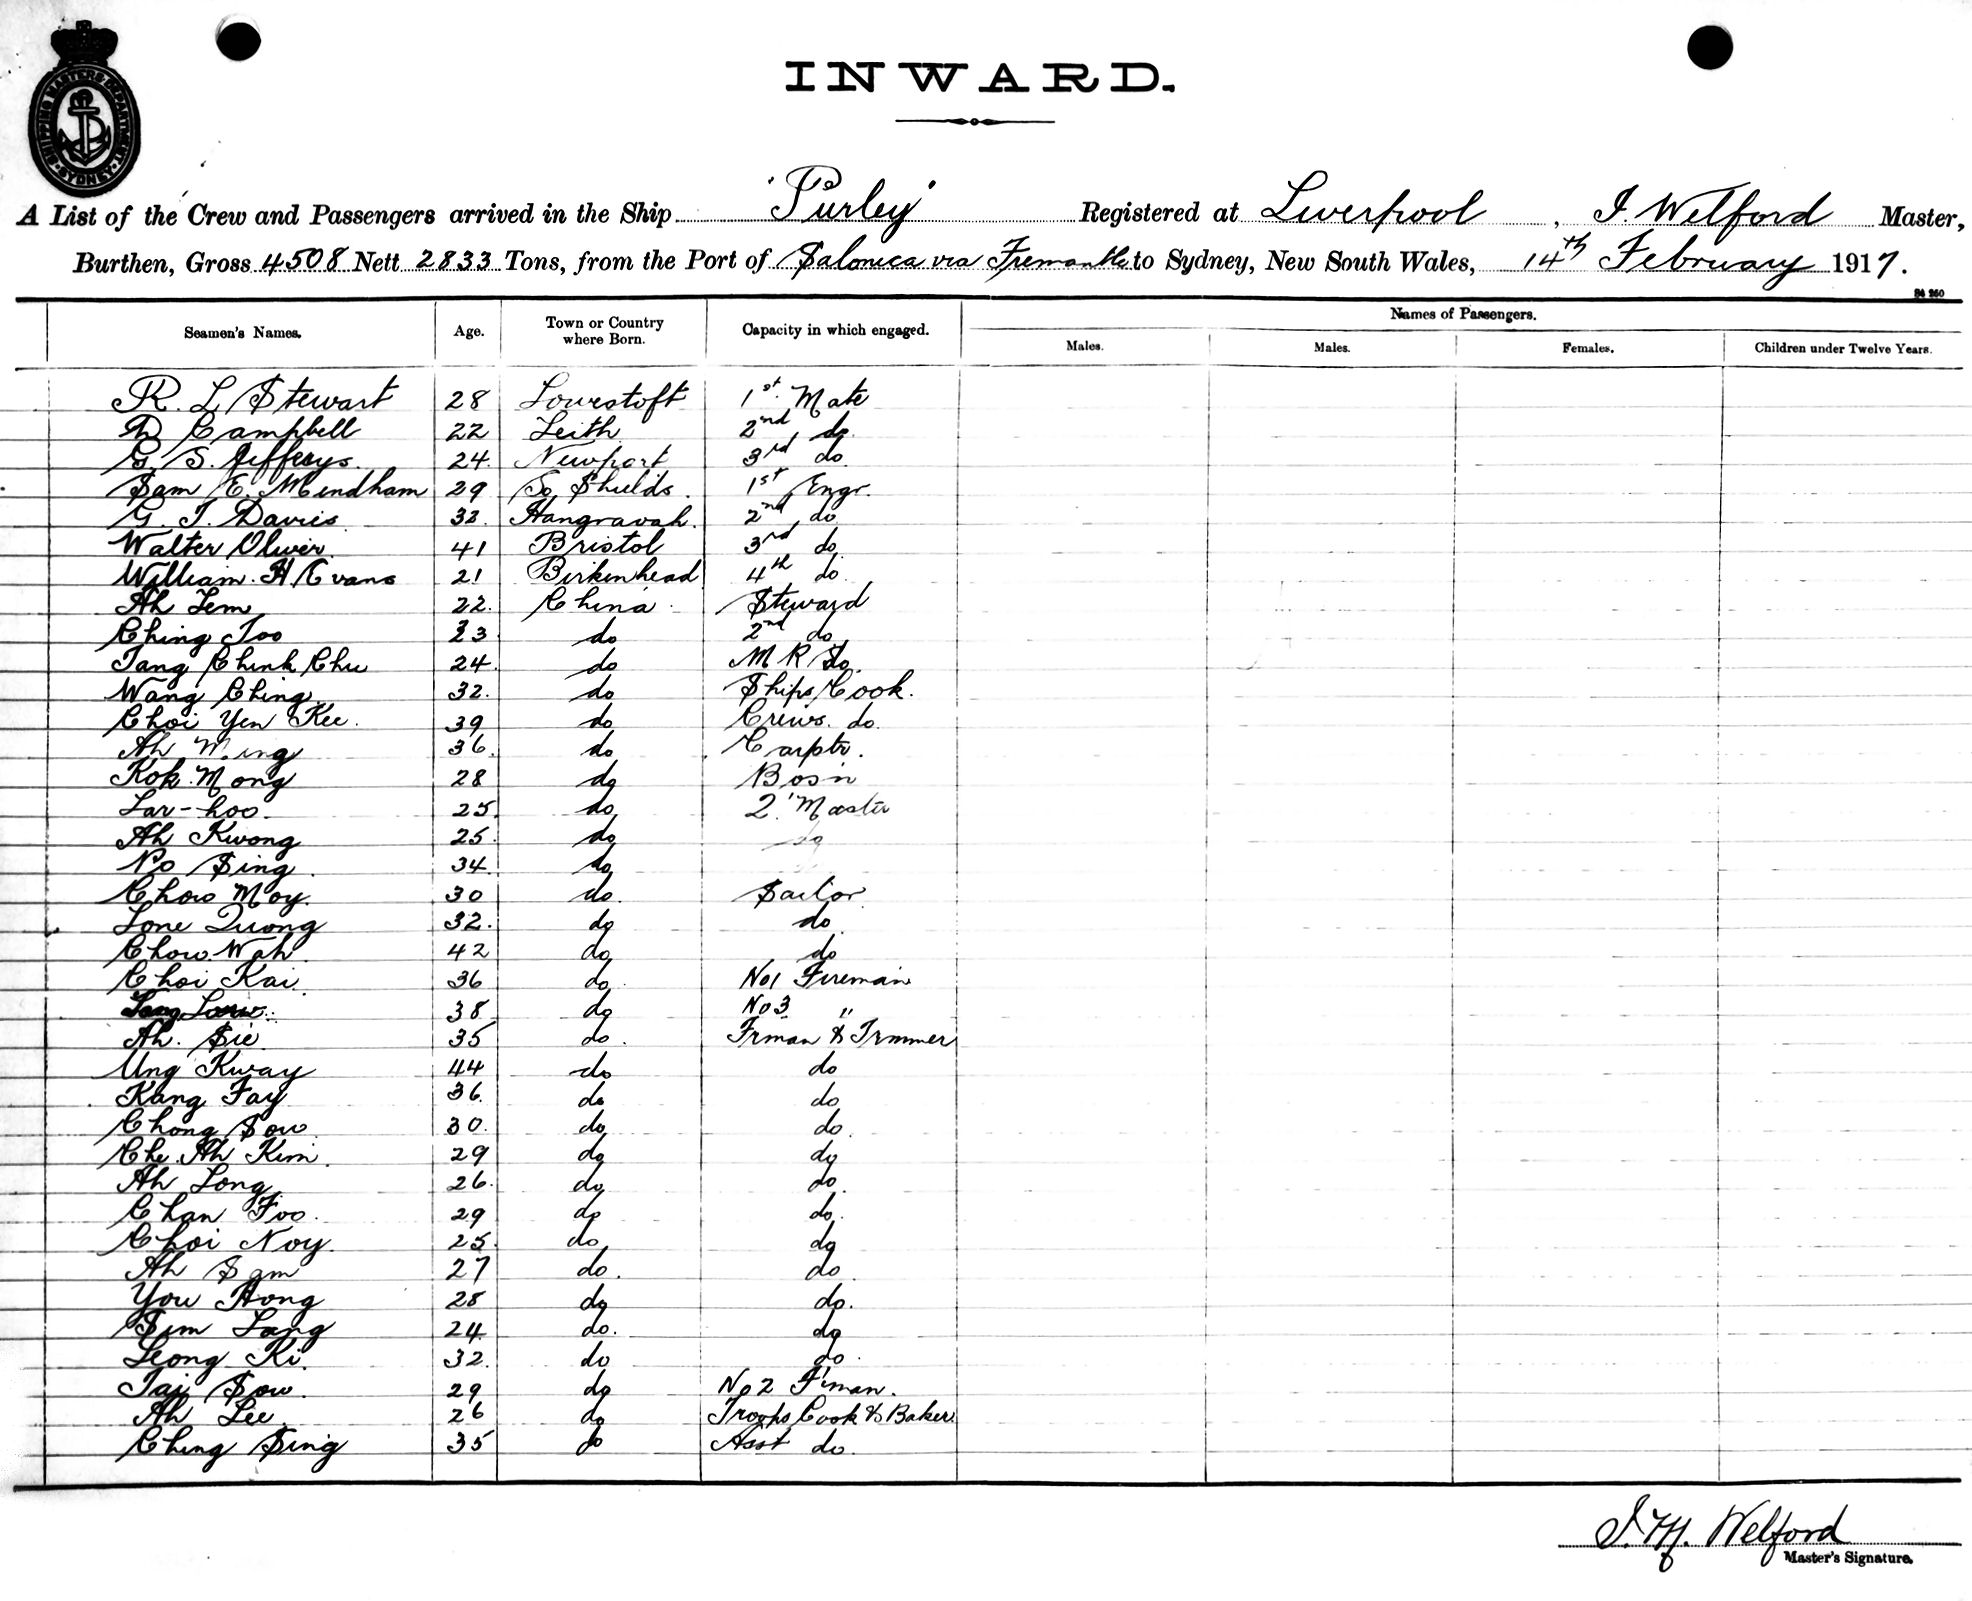 SHIPPING MASTERS DEPARTMENT
SYDNEY
INWARD.
A List of the Crew and Passengers arrived in the Ship 'Purley' Registered at Liverpool, J. Welford Master,
Burthen, Gross 4508 Nett 2833 Tons, from the Port of Salonica via Fremantle to Sydney, New South Wales, 14th February 1917.
Seamen's Names. Age. Town or Country where Born. Capacity in which engaged. Names of Passengers.
Males. Males. Females. Children under Twelve Years.
R. L. Stewart 28 Lowestoft 1st Mate
D Campbell 22 Leith 2nd do
G. S. Jefferys. 24. Newport 3rd do
Sam E. Mendham 29 So Shields. 1st Engr.
G. T. Davies 32. 2nd do
Walter Oliver 41 Bristol 3rd do
William. H Evans 21 Birkenhead 4th do
Ah Lem 22. China Steward
Ching Too 23 do 2nd do
Tang Chink Chu 24. do M R do.
Wang Ching 32. do Ships Cook.
Choi Yen Kee. 39 do Crews. do.
Ah Wing 36. do Carptr.
Kok Mong 28 do Bosn
Lar-hoo. 25. do 2. Master
Ah Kwong 25. do do
Po Sing. 34. do
Chow Moy. 30 do. Sailor.
Lone Quong 32. do do
Chow Wah. 42 do do
Choi Kai. 36 do. No 1 Fireman
38 do No 3 "
Ah. Sie 35 do. Frman & Trimmer
Ung Kway 44 do do
Kang Fay 36. do do
Chong Sow 30. do do.
Che Ah Kim. 29 do do
Ah Long 26. do do.
Chan Foo. 29 do do.
Choi Noy. 25. do do
Ah Sam 27 do. do.
You Hong 28 do do.
Sim Lang 24 do. do
Leong Ki. 32. do do.
Tai Sow. 29 do No 2 F'man.
Ah Lee 26 do Troops Cook & Baker
Ching Sing 35 do Asst do.
J. M. Welford
Master's Signature.